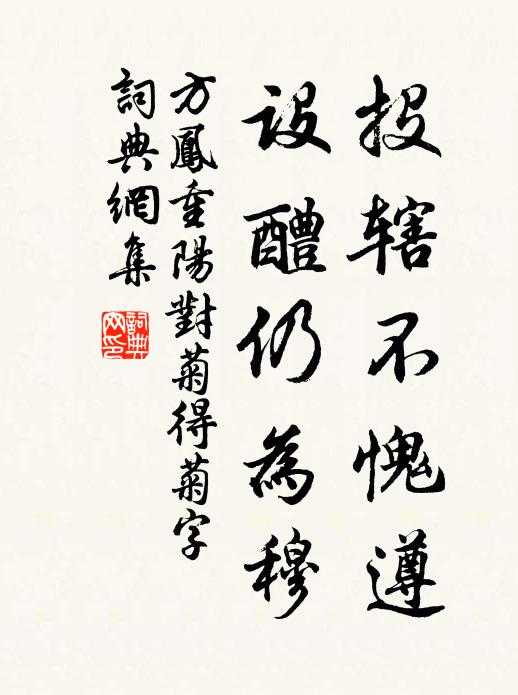 投辖不愧遵
設醴仍為穆
方鳳重陽對菊得菊字
詞典網集
詞典
网印